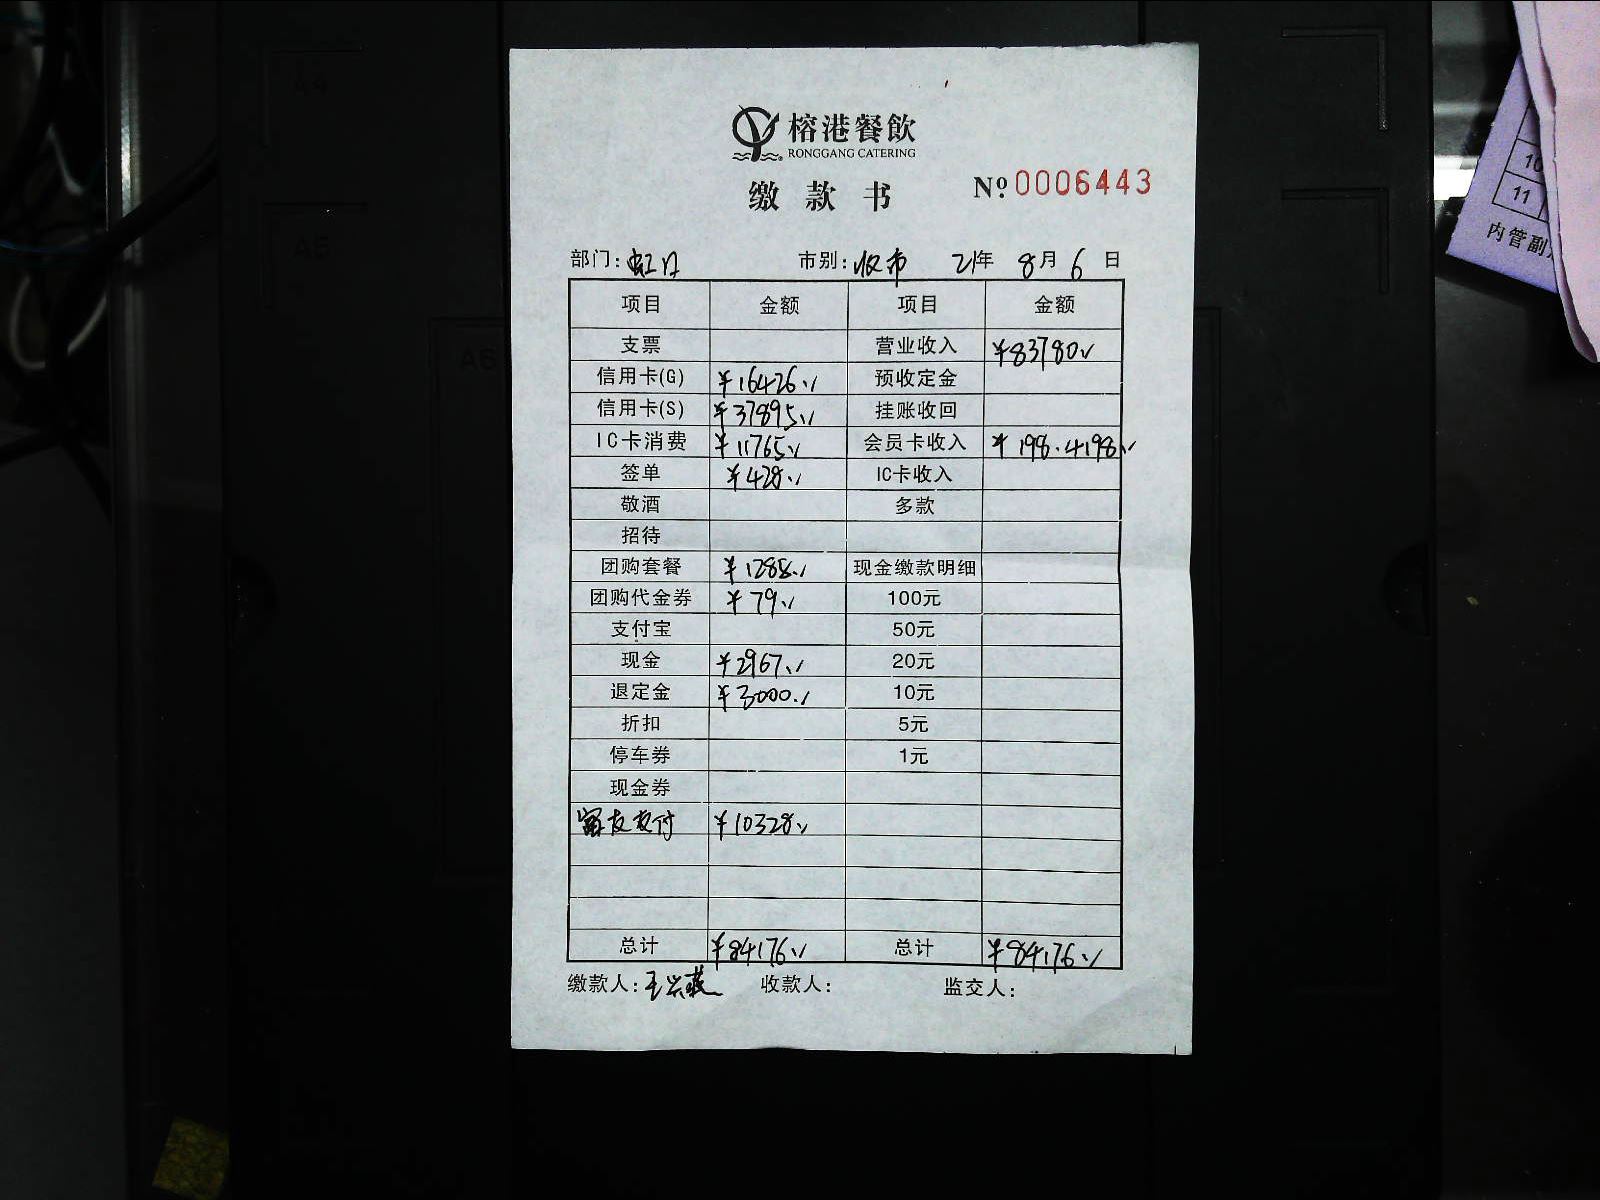 榕港餐飲
RONGGANG CATERING
缴款书 № 0006443
部门:虹口 市别:收市 21年 8月 6日
项目 金额 项目 金额
支票 营业收入 ¥83780.√
信用卡(G) ¥16426.√ 预收定金
信用卡(S) ¥37895.√ 挂账收回
IC卡消费 ¥11765.√ 会员卡收入 ¥198.4198.√
签单 ¥428.√ IC卡收入
敬酒 多款
招待
团购套餐 ¥1288.√ 现金缴款明细
团购代金券 ¥79.√ 100元
支付宝 50元
现金 ¥2967.√ 20元
退定金 ¥3000.√ 10元
折扣 5元
停车券 1元
现金券
友支付 ¥10328.√
总计 ¥84176.√ 总计 ¥84176.√
缴款人:王兴燕 收款人: 监交人:
A4
A5
A6
10
11
内管副